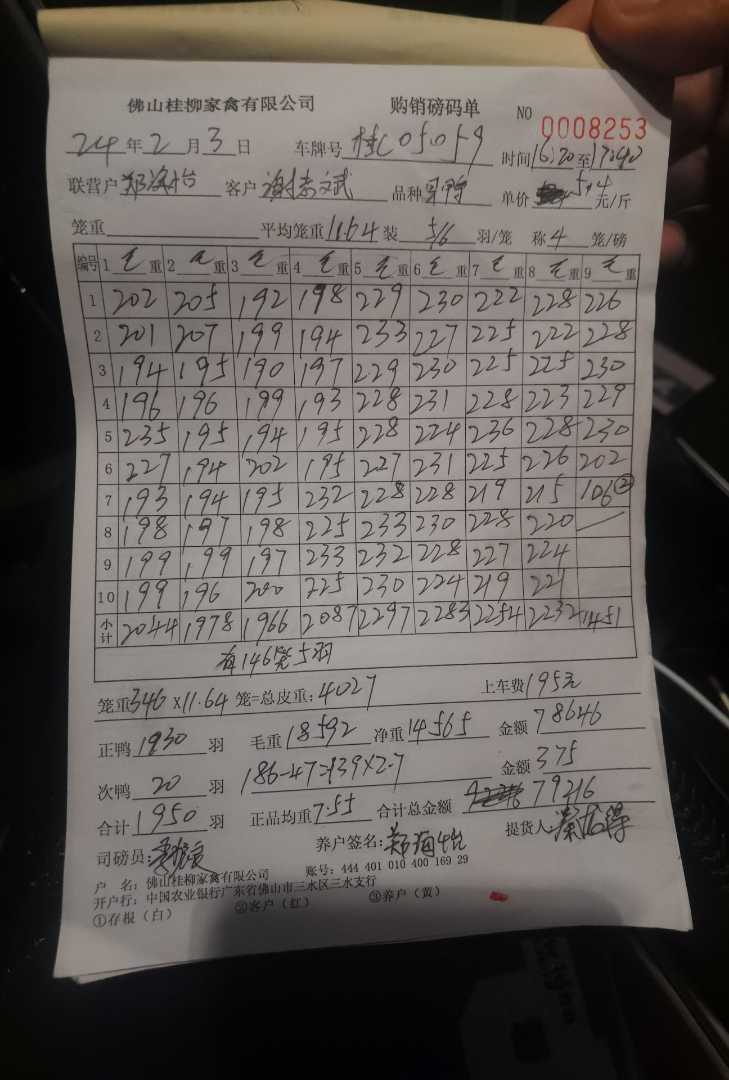 佛山桂柳家禽有限公司 购销磅码单 NO 0008253
24年2月3日 车牌号 桂C05059 时间16:20至17:40
联营户 客户 谢志斌 品种 单价 5.4 元/斤
笼重 平均笼重11.64装 5/6 羽/笼 称4笼/磅
编号 1 毛重 2 毛重 3 毛重 4 毛重 5 毛重 6 毛重 7 毛重 8 毛重 9 毛重
1 202 205 192 198 229 230 222 228 226
2 201 207 199 194 233 227 225 222 228
3 194 195 190 197 229 230 225 225 230
4 196 196 199 193 228 231 228 223 229
5 235 195 194 195 228 224 236 228 230
6 227 194 202 195 227 231 225 226 202
7 193 194 195 232 228 228 219 215 106②
8 198 197 198 225 233 230 228 220
9 199 199 197 233 232 228 227 224
10 199 196 200 225 230 224 219 221
小计 2044 1978 1966 2087 2297 2283 2254 2232 1451
有146笼5羽
笼重346×11.64 笼=总皮重:4027 上车费195元
正鸭1930羽 毛重18592 净重14565 金额78646
次鸭20羽 186-47=139×2.7 金额375
合计1950羽 正品均重7.55 合计总金额 79216
司磅员: 养户签名: 提货人:
户 名:佛山桂柳家禽有限公司 账号:444 401 010 400 169 29
开户行:中国农业银行广东省佛山市三水区三水支行
①存根(白) ②客户(红) ③养户(黄)